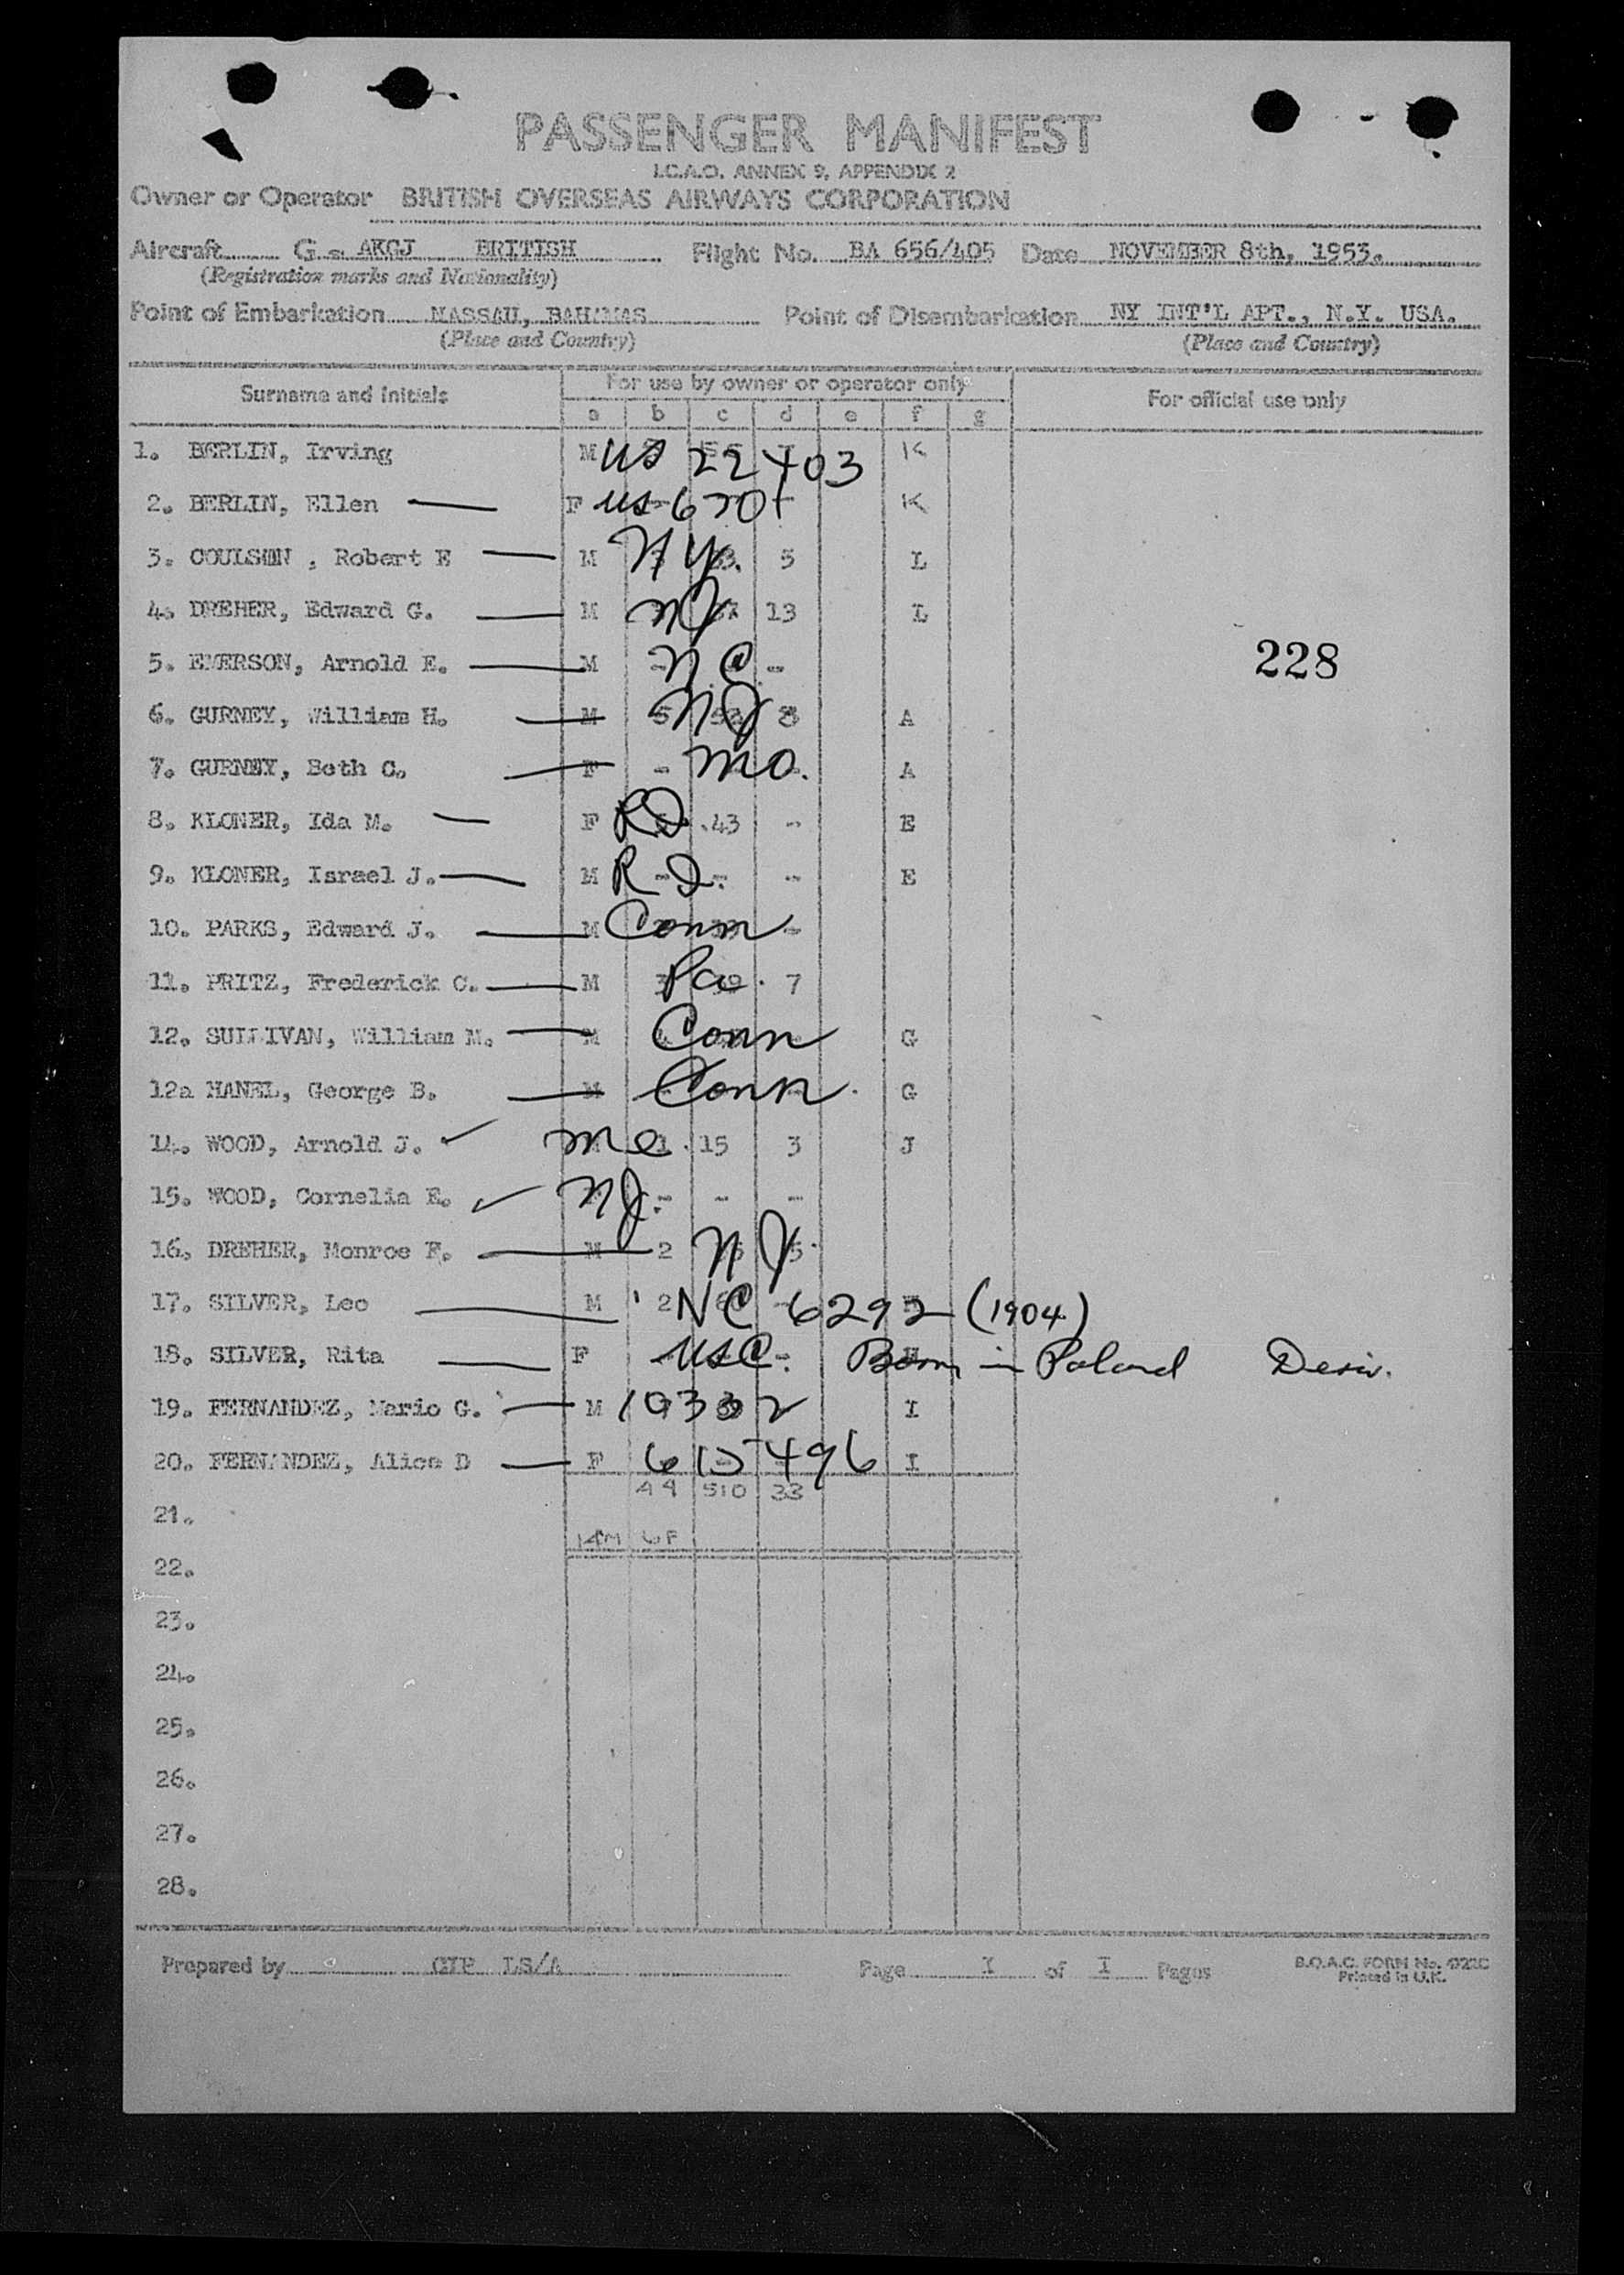 PASSENGER MANIFEST
I.C.A.O. ANNEX 9, APPENDIX 2
Owner or Operator BRITISH OVERSEAS AIRWAYS CORPORATION
Aircraft G - AKGJ BRITISH Flight No. BA 656/405 Date NOVEMBER 8th, 1953.
(Registration marks and Nationality)
Point of Embarkation NASSAU, BAHAMAS Point of Disembarkation NY INT'L APT., N.Y. USA.
(Place and Country) (Place and Country)
Surname and initials For use by owner or operator only For official use only
a b c d e f g
1. BERLIN, Irving M US 22403 K
2. BERLIN, Ellen F US K
3. COULSON , Robert E M NY. 5 L
4. DREHER, Edward G. M NJ 13 L
5. EMERSON, Arnold E. M N.C. -
228
6. GURNEY, William H. M 5 NJ 8 A
7. GURNEY, Beth C. F - MO. A
8. KLONER, Ida M. F 43 - E
9. KLONER, Israel J. M - E
10. PARKS, Edward J. M Conn -
11. PRITZ, Frederick C. M Pa. 7
12. SULLIVAN, William M. M Conn G
12a HANEL, George B. M Conn. G
14. WOOD, Arnold J. ✓ Me 1 15 3 J
15. WOOD, Cornelia E. ✓ NJ. - - -
16. DREHER, Monroe F. M 2 NJ 5
17. SILVER, Leo M 2 NC 6292 (1904)
18. SILVER, Rita F USC. Born in Poland Deriv.
19. FERNANDEZ, Mario G. M I
20. FERNANDEZ, Alice D F 615496 I
510 33
21.
14M 6F
22.
23.
24.
25.
26.
27.
28.
Prepared by LS/A Page I of I Pages B.O.A.C. FORM No.
Printed in U.K.